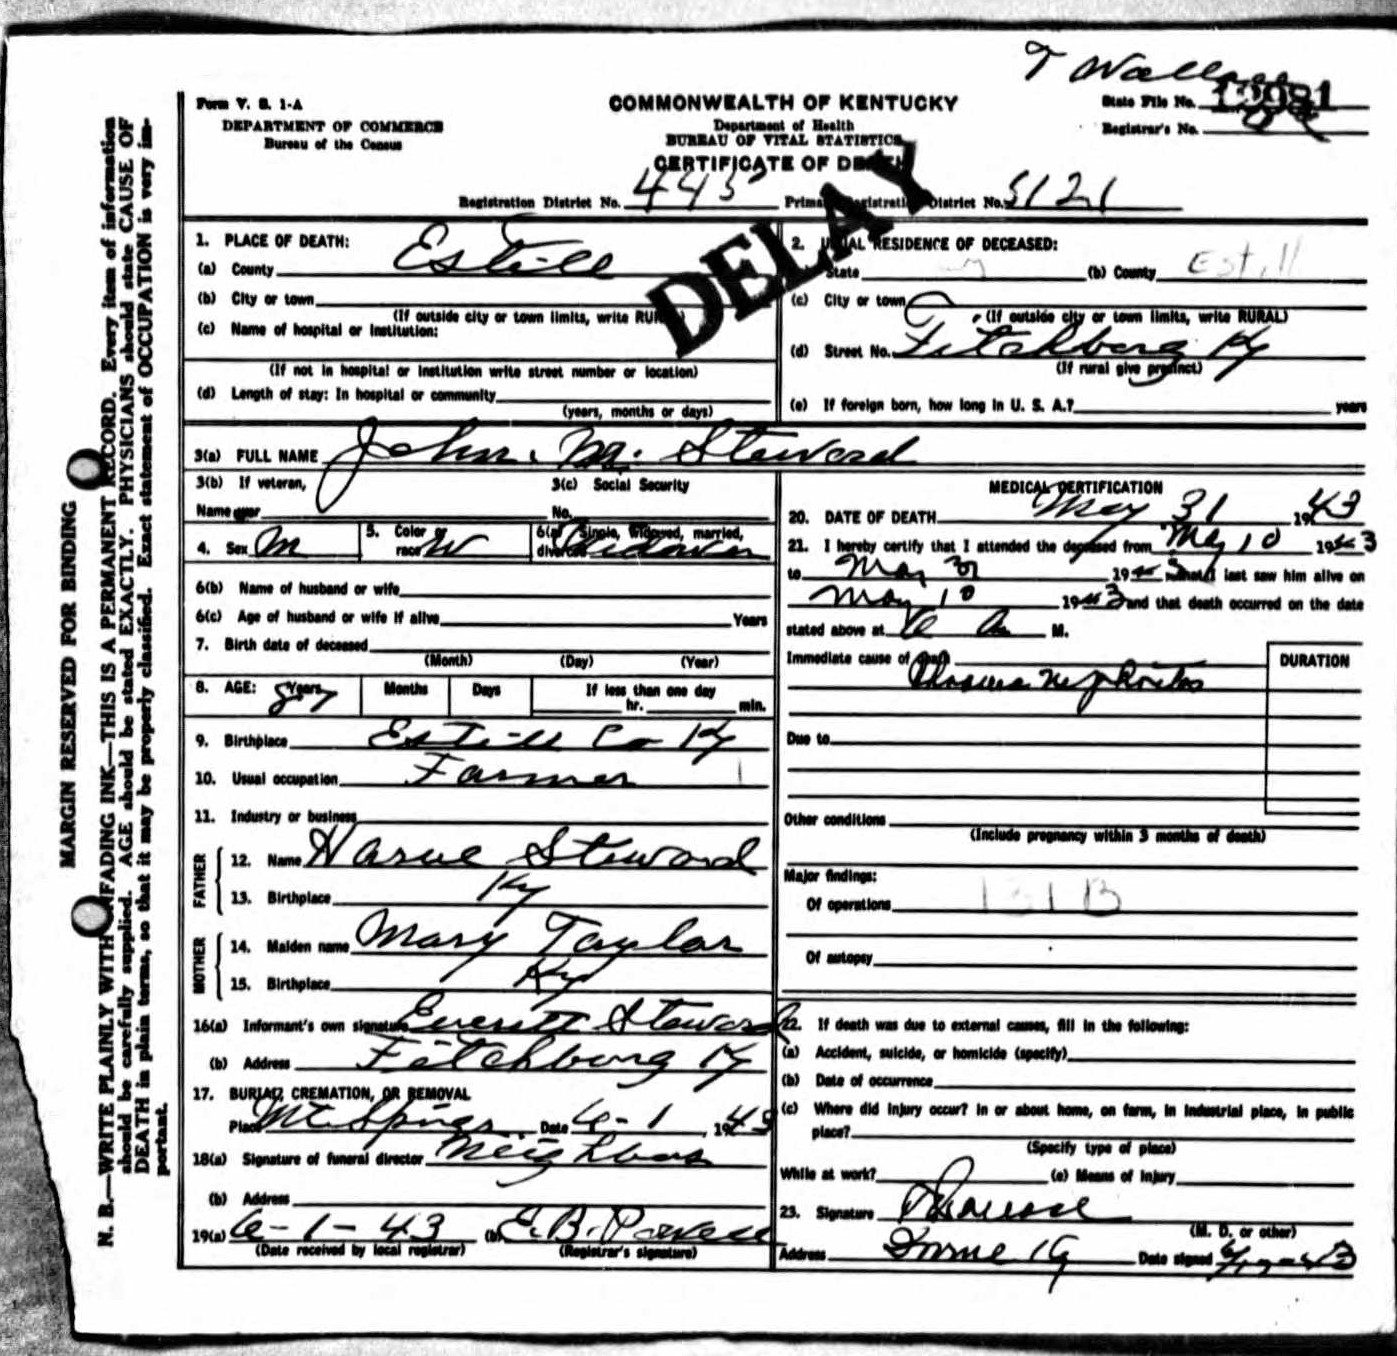 T Wallace
Form V. S. 1-A
DEPARTMENT OF COMMERCE
Bureau of the Census
COMMONWEALTH OF KENTUCKY
Department of Health
BUREAU OF VITAL STATISTICS
CERTIFICATE OF DEATH
State File No.
Registrar's No.
DELAY
Registration District No. 445 Primary Registration District No. 5121
1. PLACE OF DEATH:
(a) County Estill
(b) City or town
(If outside city or town limits, write RURAL)
(c) Name of hospital or institution:
(If not in hospital or institution write street number or location)
(d) Length of stay: In hospital or community
(years, months or days)
2. USUAL RESIDENCE OF DECEASED:
(a) State (b) County Estill
(c) City or town
(If outside city or town limits, write RURAL)
(d) Street No. Fitchburg Ky
(If rural give precinct)
(e) If foreign born, how long in U. S. A.? years
3(a) FULL NAME John. M. Steward
3(b) If veteran, 3(c) Social Security
Name war No.
4. Sex M 5. Color or race W 6(a) Single, widowed, married, divorced Widower
6(b) Name of husband or wife
6(c) Age of husband or wife if alive Years
7. Birth date of deceased
(Month) (Day) (Year)
8. AGE: Years Months Days If less than one day
hr. min.
9. Birthplace Estill Co Ky
10. Usual occupation Farmer
11. Industry or business
FATHER
12. Name Harve Steward
13. Birthplace Ky
MOTHER
14. Maiden name Mary Taylor
15. Birthplace Ky
16(a) Informant's own signature Everett Steward
(b) Address Fitchburg Ky
17. BURIAL, CREMATION, OR REMOVAL
Place Mt Springs Date 6-1, 1943
18(a) Signature of funeral director Neighbors
(b) Address
19(a) 6-1-43 (b) E. B. Powell
(Date received by local registrar) (Registrar's signature)
MEDICAL CERTIFICATION
20. DATE OF DEATH May 31 1943
21. I hereby certify that I attended the deceased from May 10 1943
to May 31 1943 that I last saw him alive on
May 10 1943 and that death occurred on the date
stated above at 6 a M.
Immediate cause of death DURATION
Nephritis
Due to
Other conditions
(Include pregnancy within 3 months of death)
Major findings:
Of operations 131B
Of autopsy
22. If death was due to external causes, fill in the following:
(a) Accident, suicide, or homicide (specify)
(b) Date of occurrence
(c) Where did injury occur? In or about home, on farm, in industrial place, in public
place?
(Specify type of place)
While at work? (e) Means of injury
23. Signature
(M. D. or other)
Address Date signed
MARGIN RESERVED FOR BINDING
N. B.—WRITE PLAINLY WITH UNFADING INK—THIS IS A PERMANENT RECORD. Every item of information
should be carefully supplied. AGE should be stated EXACTLY. PHYSICIANS should state CAUSE OF
DEATH in plain terms, so that it may be properly classified. Exact statement of OCCUPATION is very im-
portant.